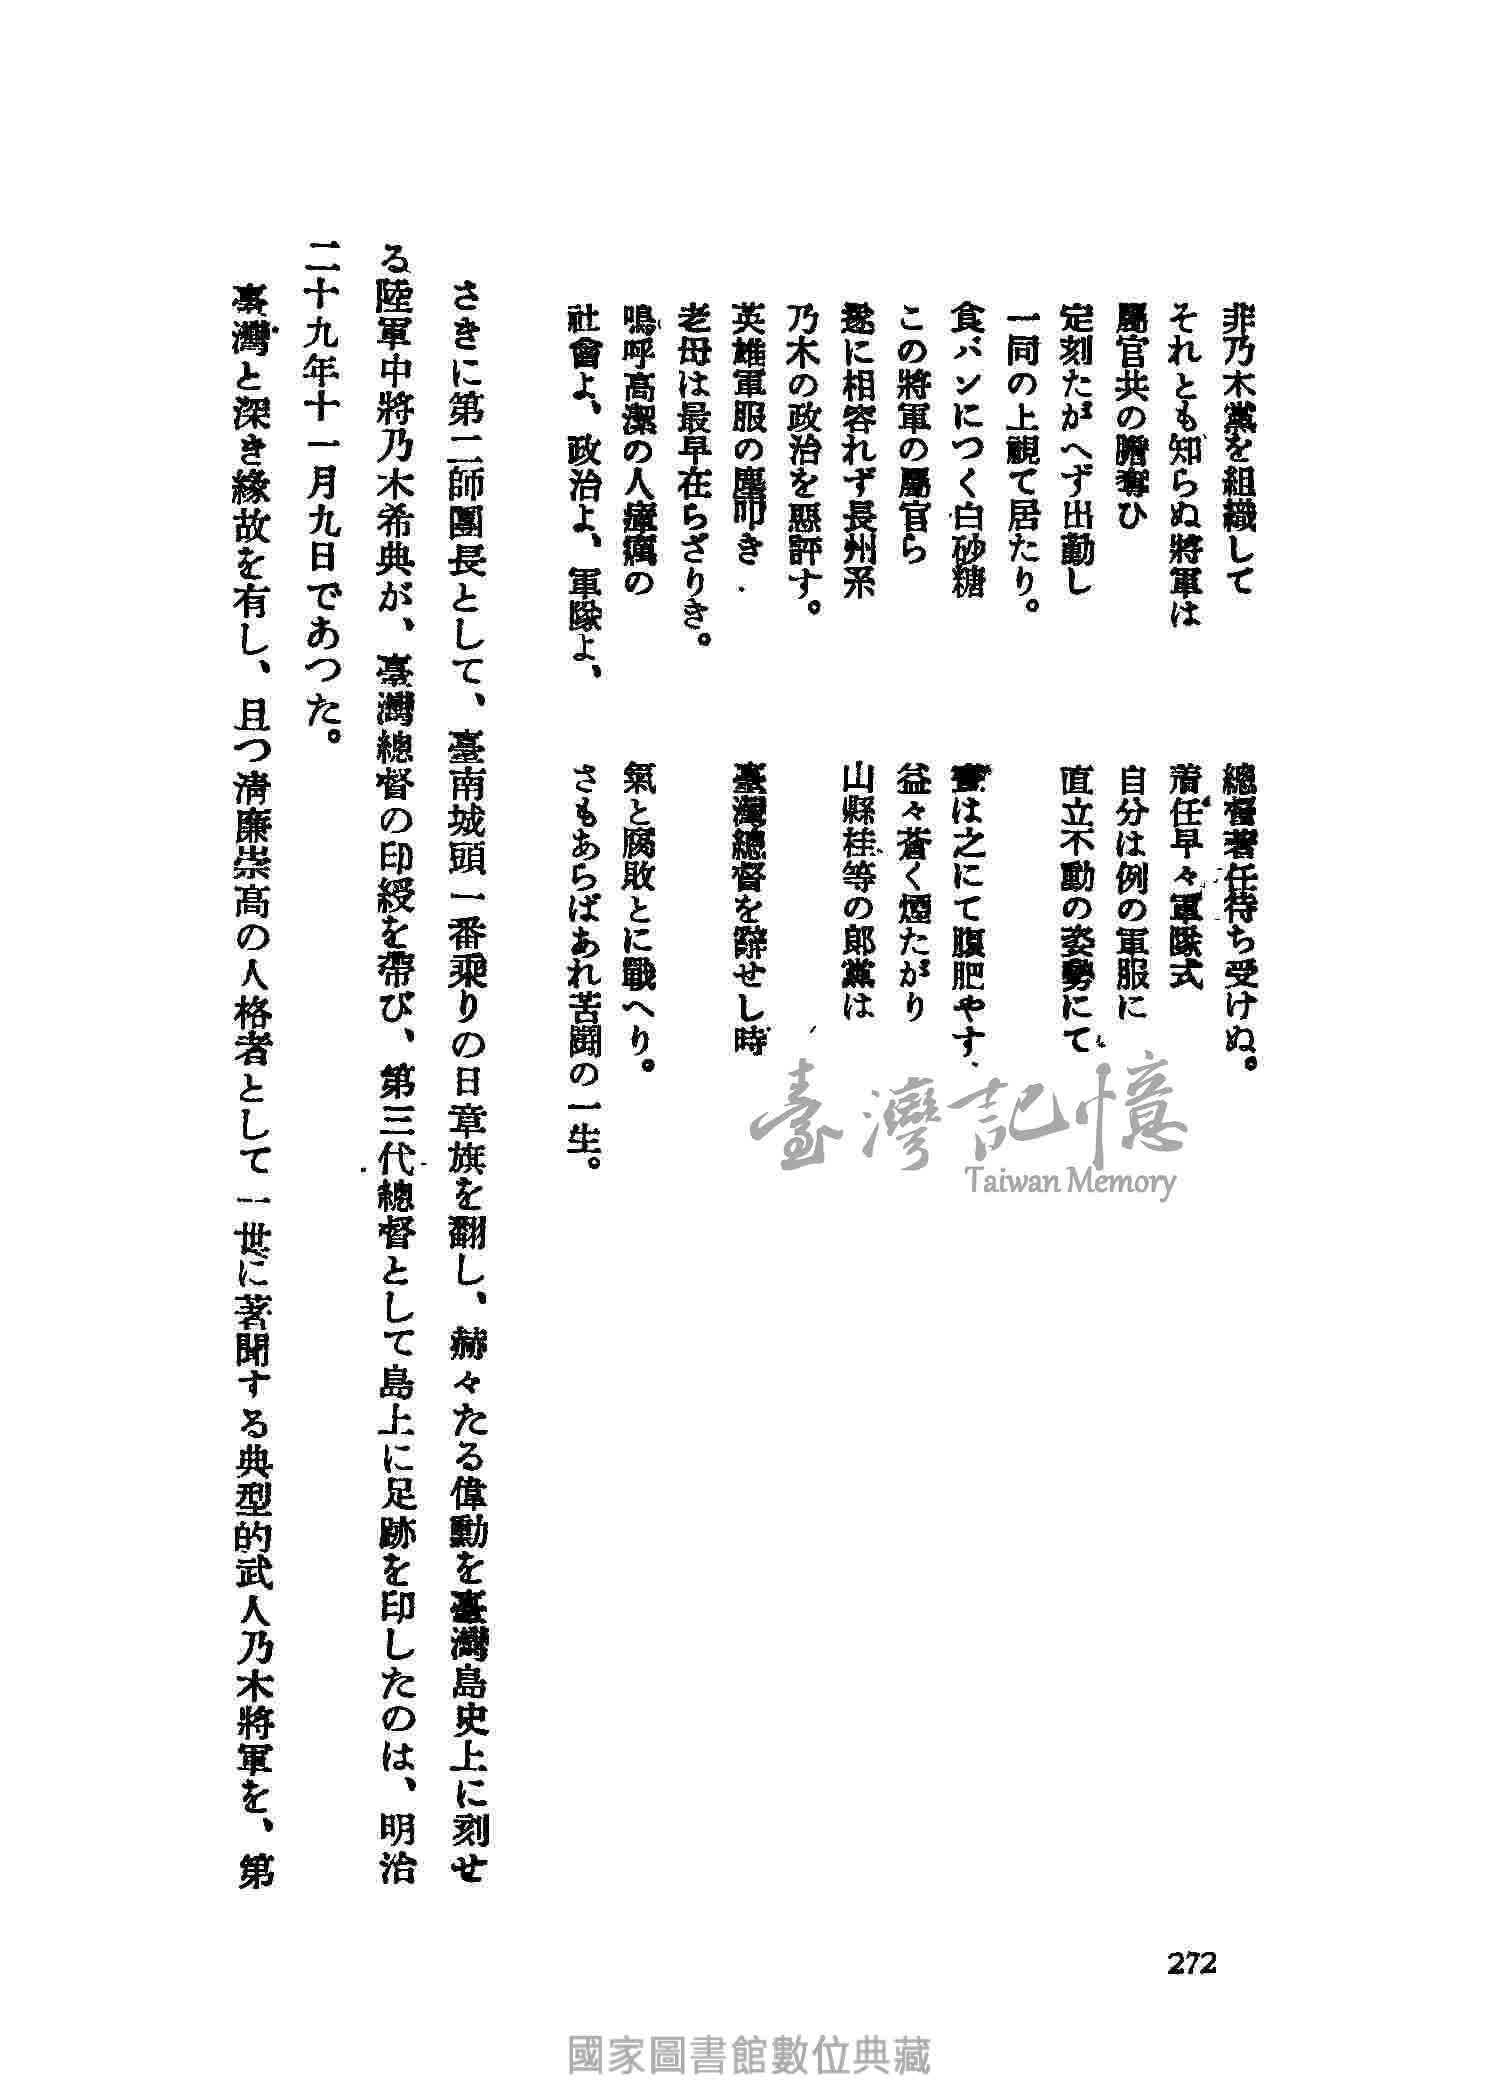 非乃木黨を組織して　總督著任待ち受けぬ。
それとも知らぬ將軍は　着任早々軍隊式
屬官共の膽奪ひ　自分は例の軍服に
定刻たがへず出勤し　直立不動の姿勢にて
一同の上覗て居たり。
食パンにつく白砂糖　は之にて腹肥やす
この將軍の屬官ら　益々蒼く煙たがり
遂に相容れず長州系　山縣桂等の郎黨は
乃木の政治を惡評す。
英雄軍服の塵叩き　臺灣總督を辭せし時
老母は最早在らざりき。
鳴呼高潔の人瘴癘の　氣と腐敗とに戰へり。
社會よ、政治よ、軍隊よ、　さもあらばあれ苦鬪の一生。
さきに第二師團長として、臺南城頭一番乘りの日章旗を翻し、赫々たる偉勳を臺灣島史上に刻せ
る陸軍中將乃木希典が、臺灣總督の印綬を帶び、第三代總督として島上に足跡を印したのは、明治
二十九年十一月九日であつた。
臺灣と深き緣故を有し、且つ淸廉崇高の人格者として一世に著聞する典型的武人乃木將軍を、第
272
臺灣記憶
Taiwan Memory
國家圖書館數位典藏